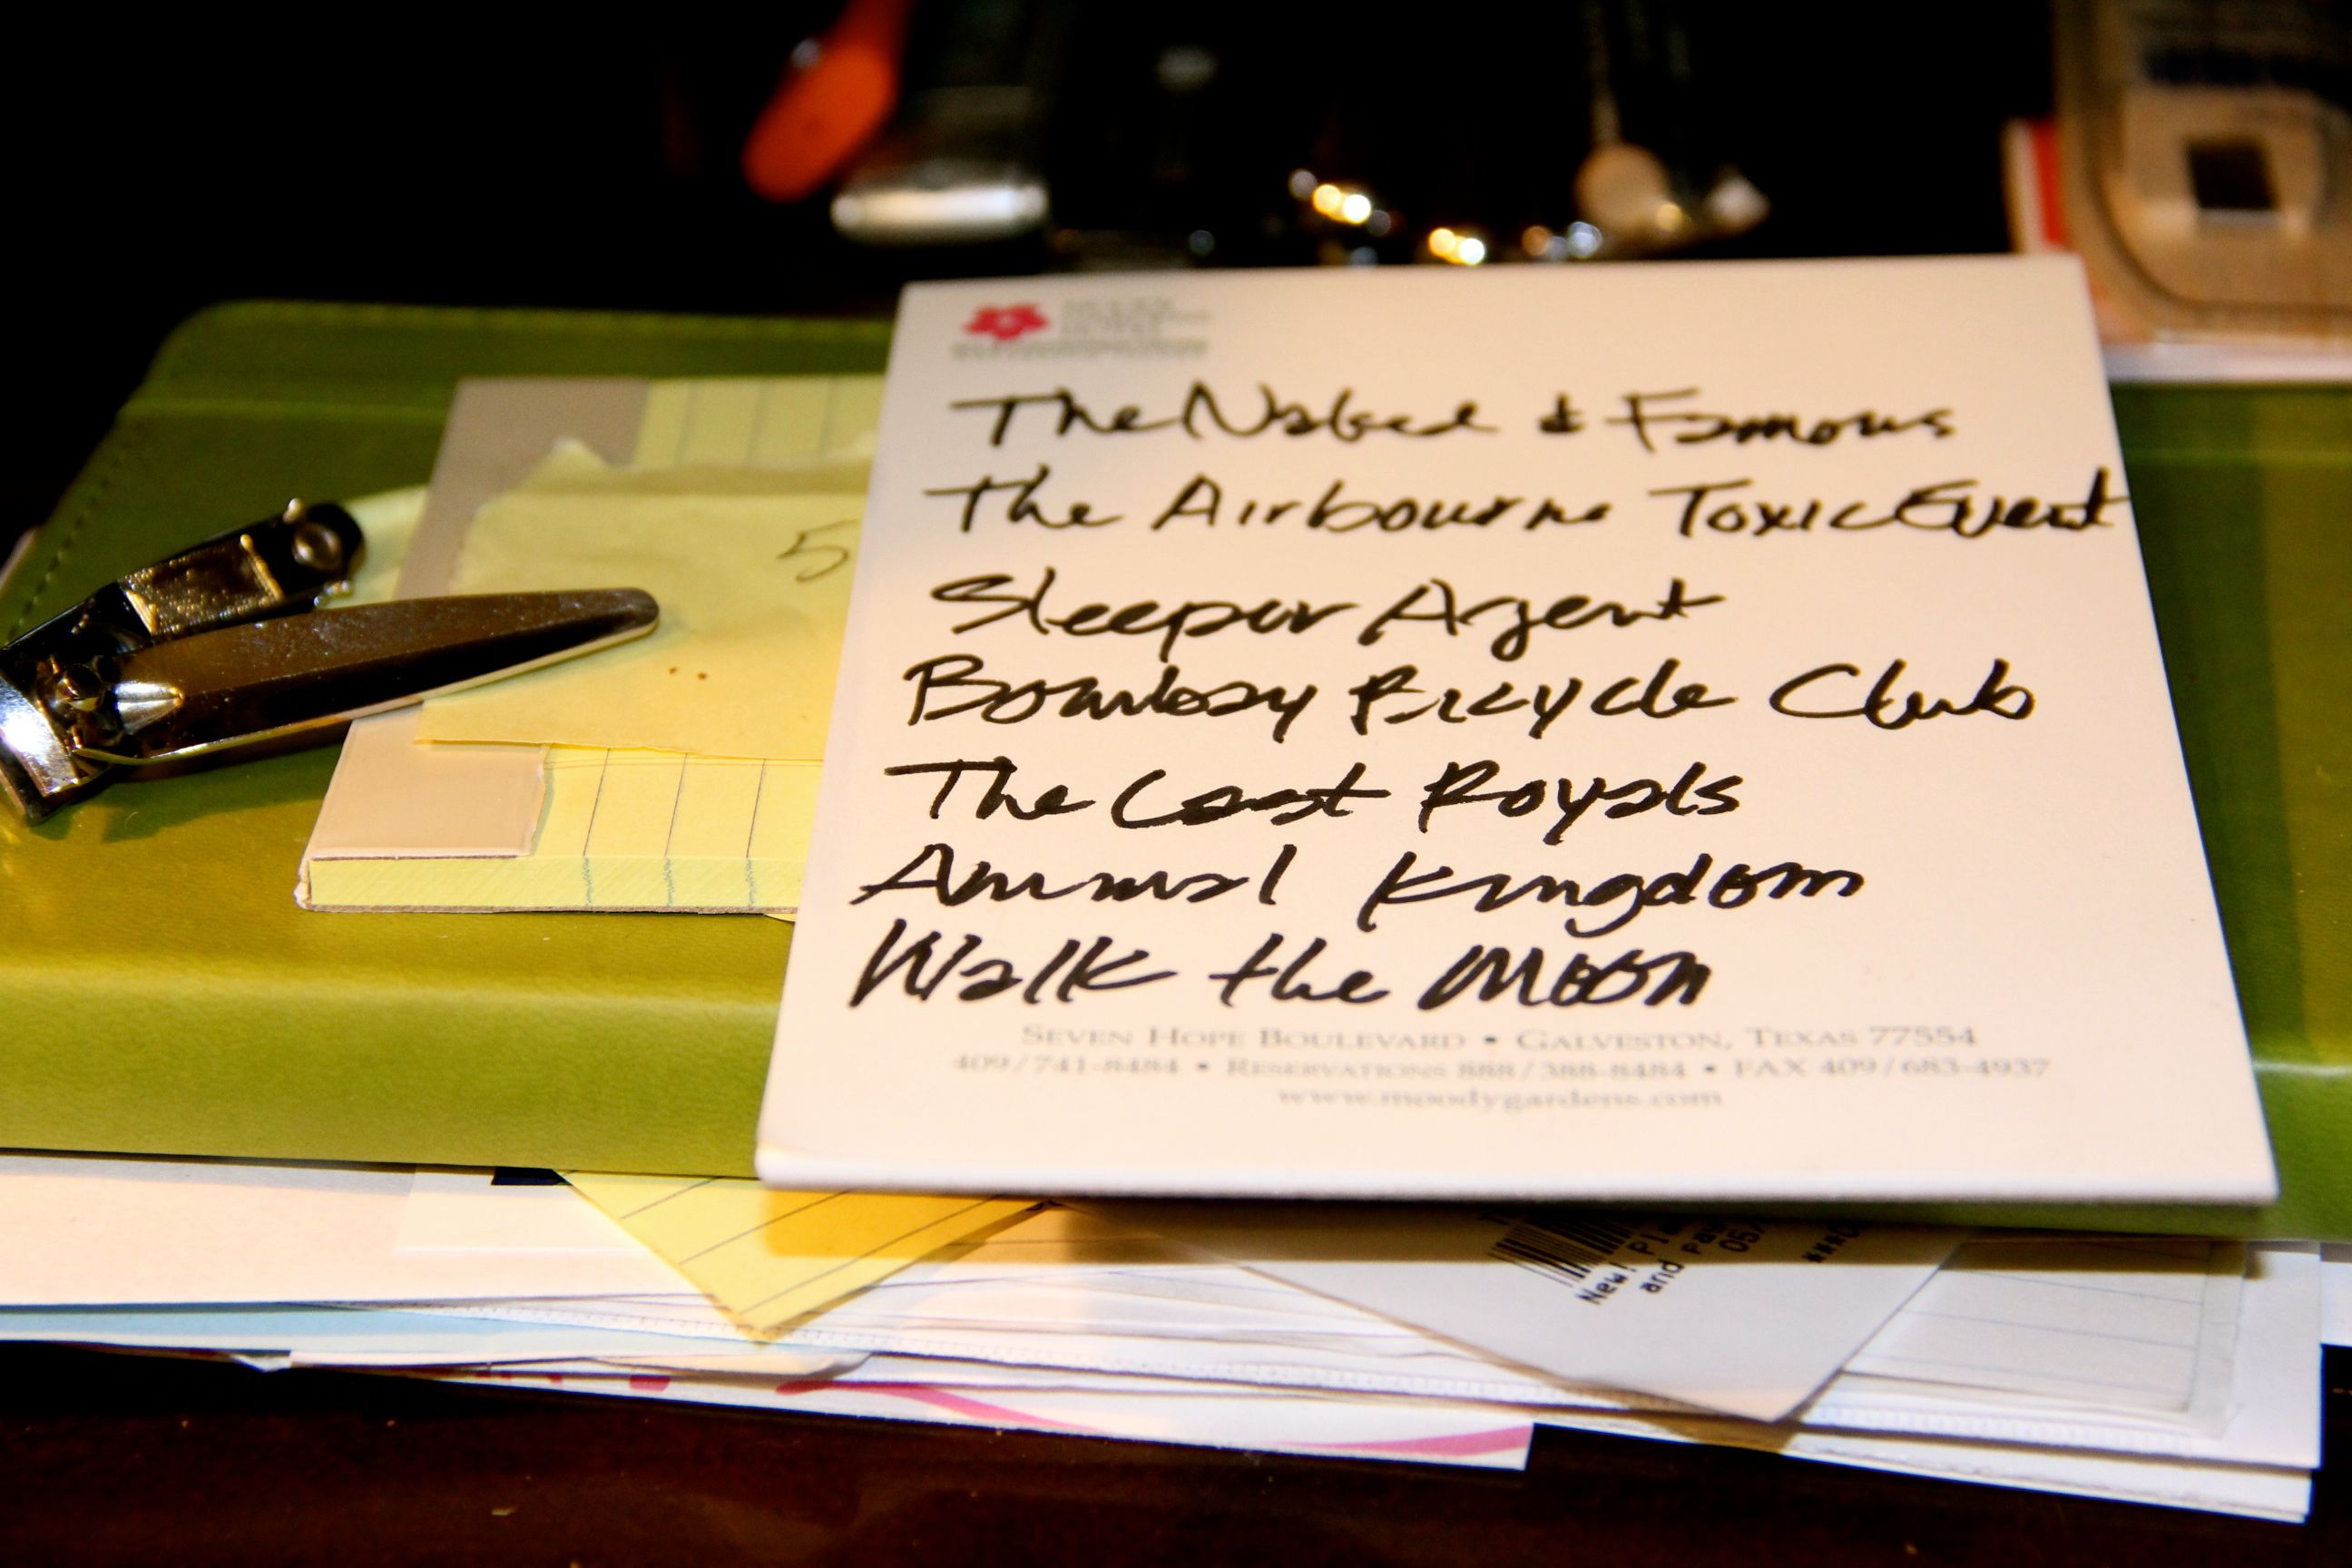 The Naked & Famous
The Airbourne Toxic Event
Sleeper Agent
Bombay Bicycle Club
The Cast Royals
Animal Kingdom
Walk the Moon
SEVEN HOPE BOULEVARD • GALVESTON, TEXAS 77554
409/741-8484 • RESERVATIONS 888/388-8484 • FAX 409/683-4937
www.moodygardens.com
5
New! Pl
and pa
05/